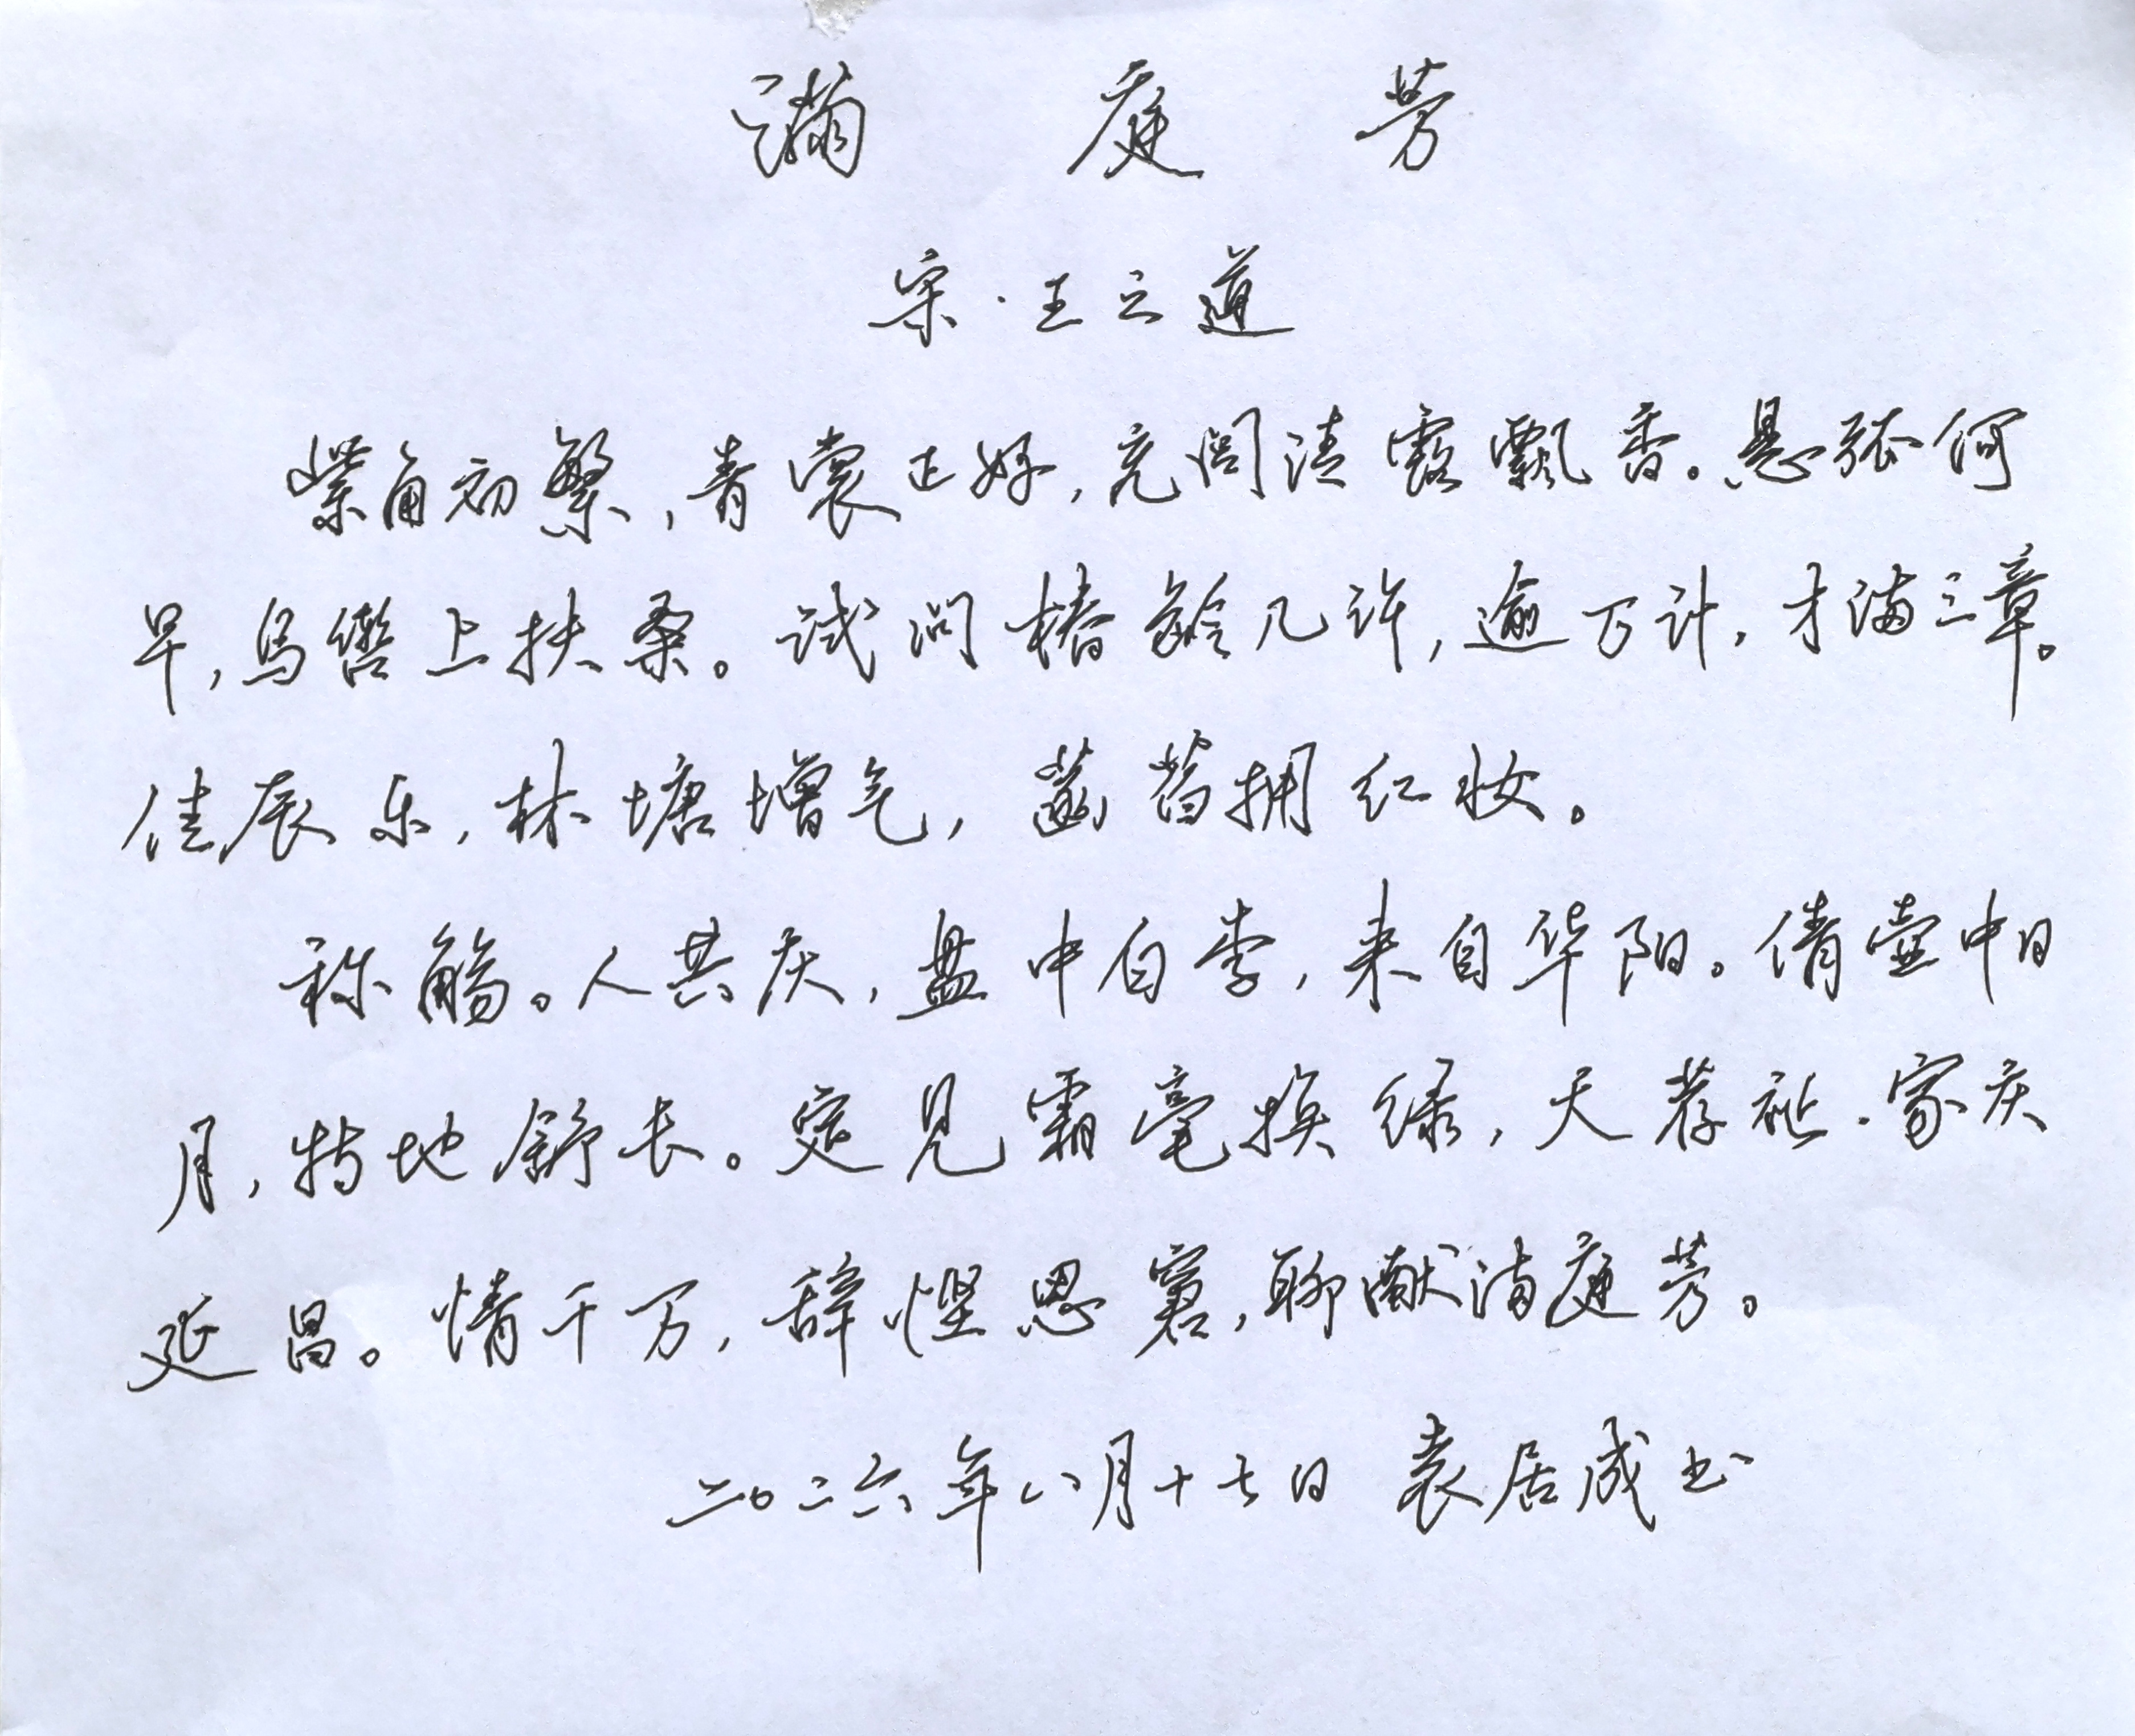 满庭芳
宋·王之道
紫角初繁，青裳正好，充闾清露飘香。悬弧何
早，乌辔上扶桑。试问椿龄几许，逾万计，才满三章。
佳辰乐，林塘增气，菡萏拥红妆。
称觞。人共庆，盘中白李，来自华阳。倩壶中日
月，特地舒长。定见霜毫换绿，天荐祉，家庆
延昌。情千万，辞悭思窘，聊献满庭芳。
二〇二六年八月十七日 袁居成书